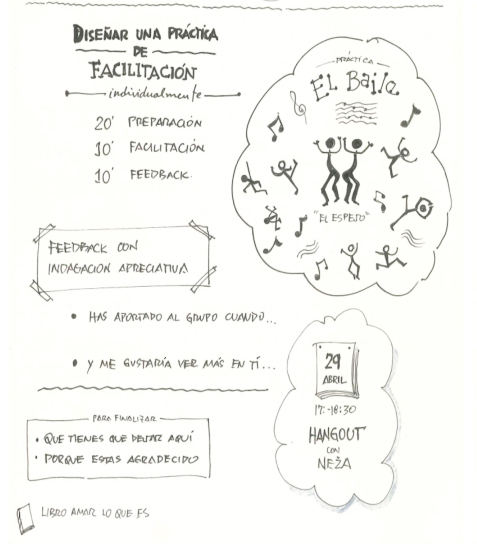 DISEÑAR UNA PRÁCTICA
DE
FACILITACIÓN
individualmente
20' PREPARACIÓN
10' FACILITACIÓN
10' FEEDBACK.
PRÁCTICA
EL BAILE
"EL ESPEJO"
FEEDBACK CON
INDAGACIÓN APRECIATIVA
• HAS APORTADO AL GRUPO CUANDO...
• Y ME GUSTARÍA VER MÁS EN TÍ...
29
ABRIL
17:-18:30
HANGOUT
CON
NEŽA
PARA FINALIZAR
• QUE TIENES QUE DEJAR AQUÍ
• PORQUE ESTAS AGRADECIDO
LIBRO AMAR LO QUE ES